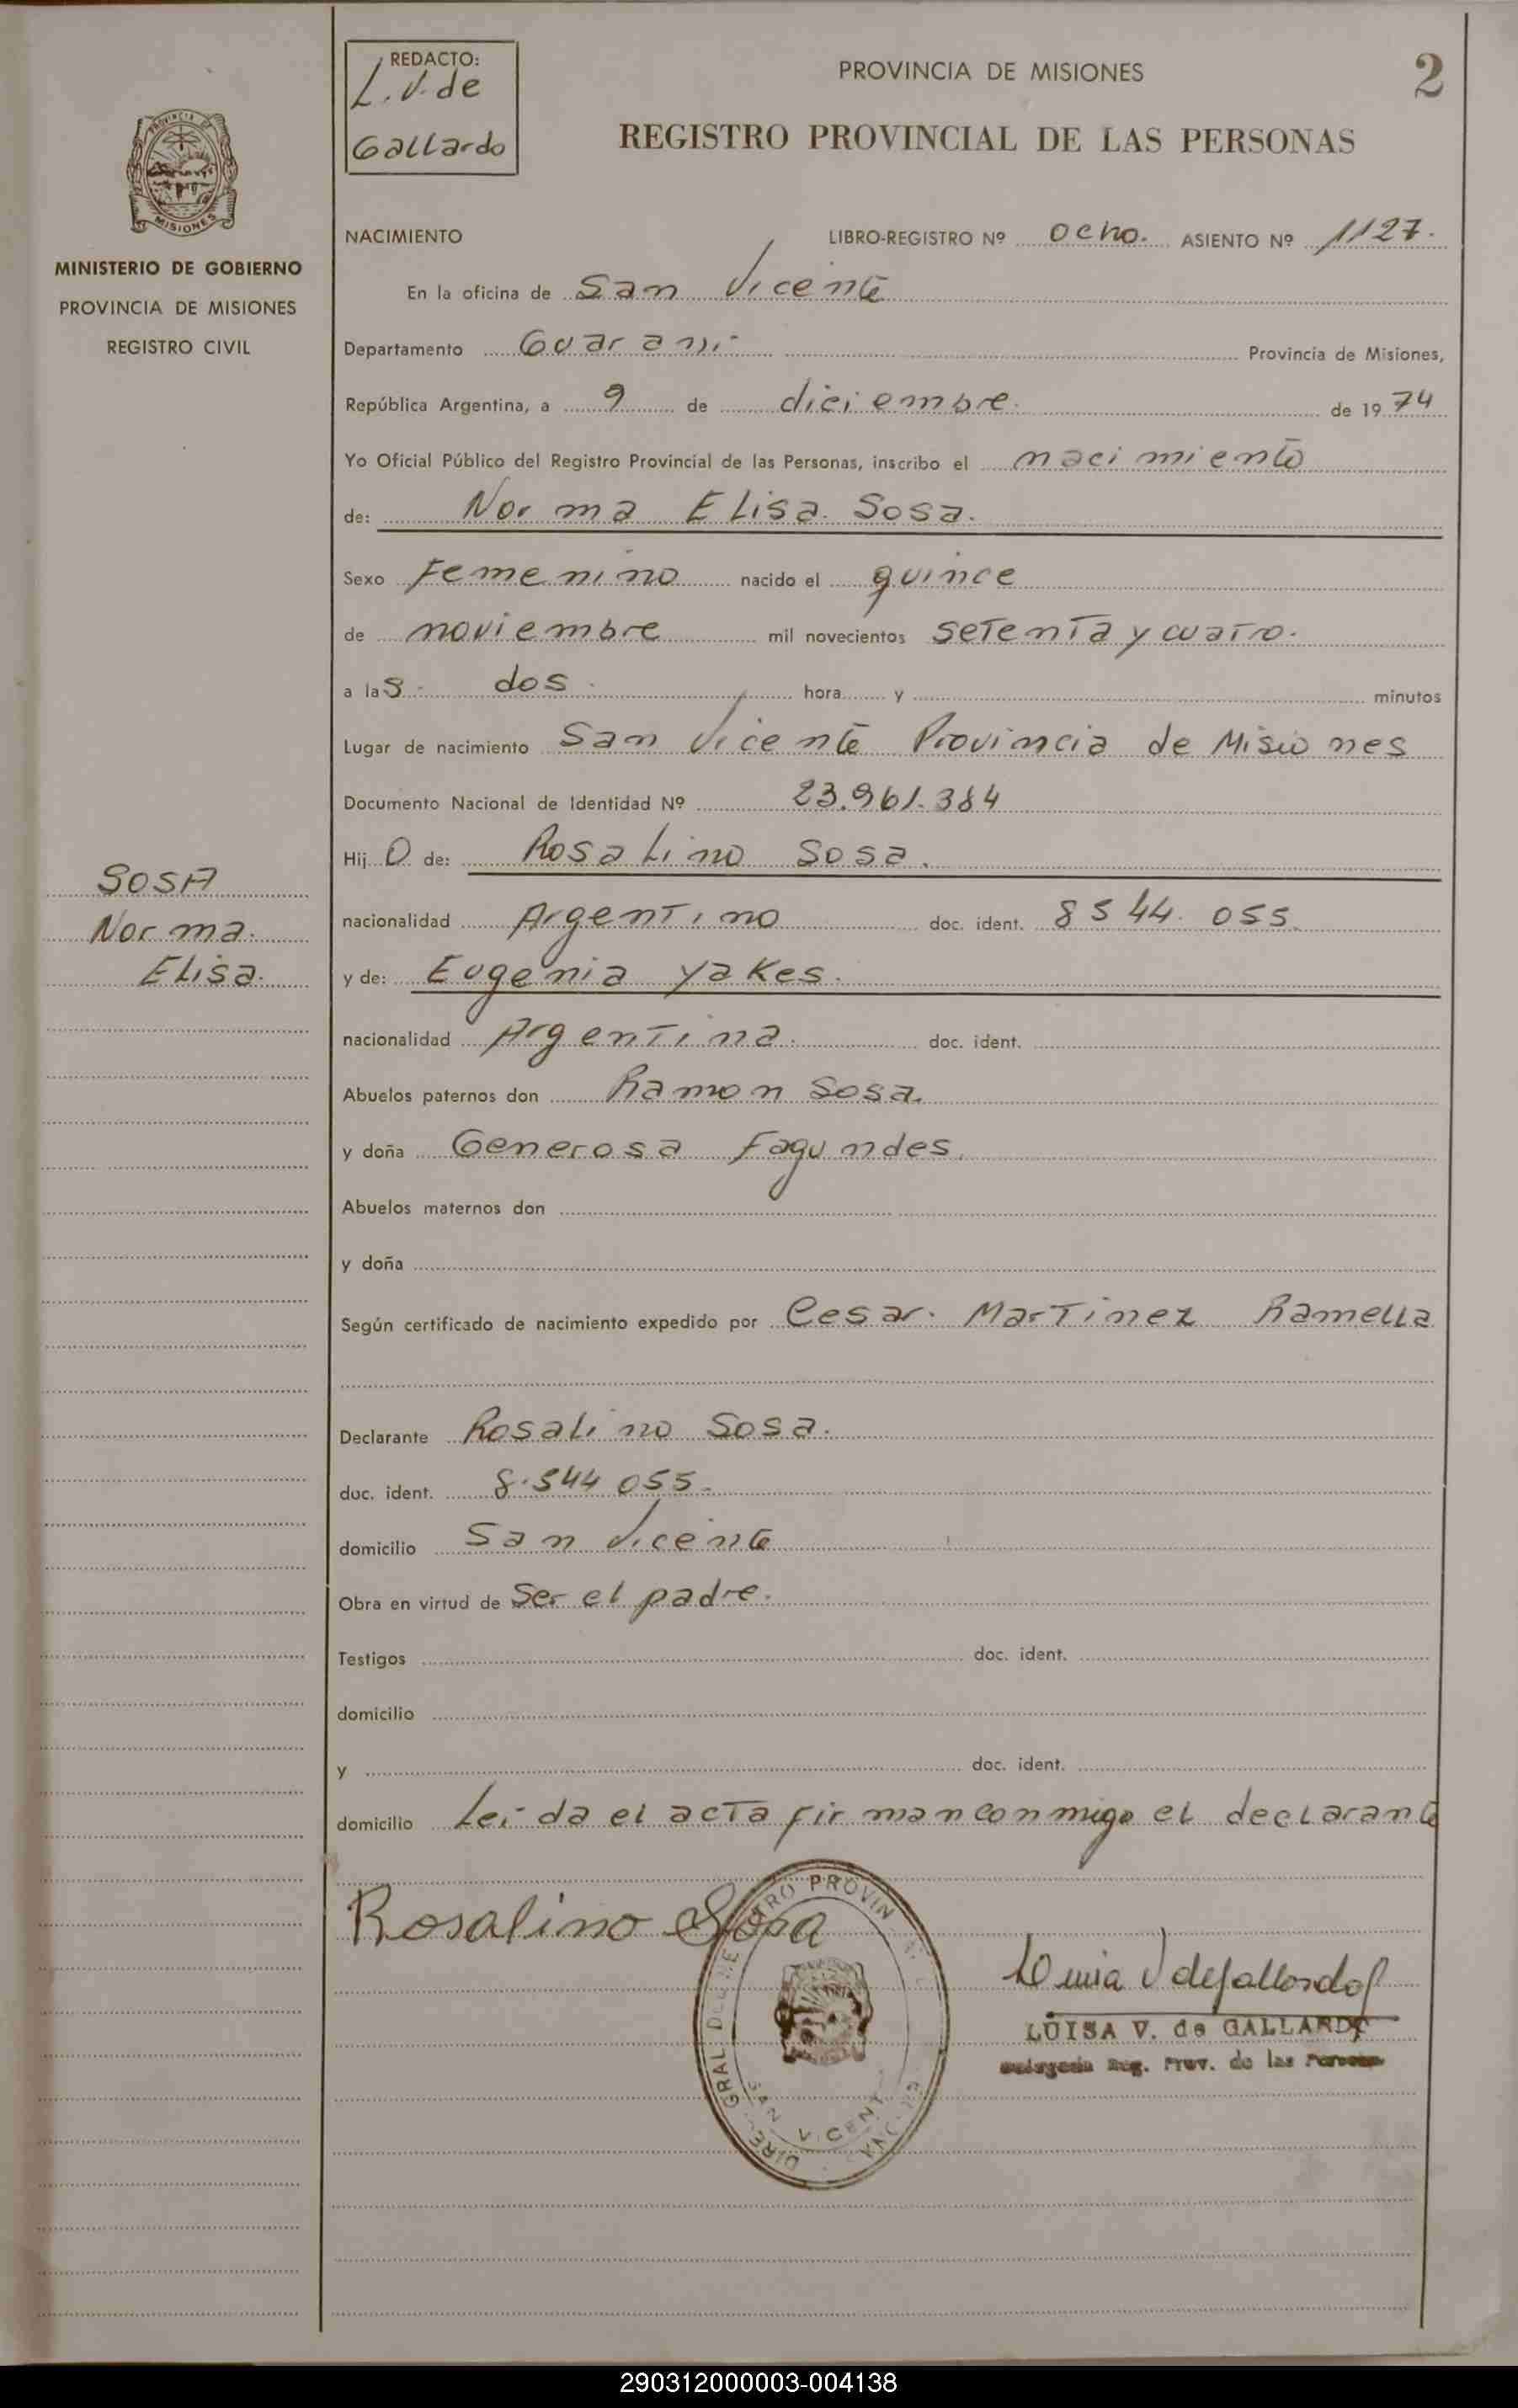 REDACTO:
L. V. de
Gallardo
PROVINCIA DE MISIONES
2
REGISTRO PROVINCIAL DE LAS PERSONAS
PROVINCIA DE
MISIONES
MINISTERIO DE GOBIERNO
PROVINCIA DE MISIONES
REGISTRO CIVIL
NACIMIENTO LIBRO-REGISTRO Nº ocho. ASIENTO Nº 1127.
En la oficina de San Vicente
Departamento Guarani Provincia de Misiones,
República Argentina, a 9 de diciembre. de 1974
Yo Oficial Público del Registro Provincial de las Personas, inscribo el nacimiento
de: Norma Elisa. Sosa.
Sexo Femenino nacido el quince
de noviembre mil novecientos setenta y cuatro.
a las dos hora y minutos
Lugar de nacimiento San Vicente Provincia de Misiones
Documento Nacional de Identidad Nº 23.961.384
Hij O de: Rosalino Sosa.
nacionalidad Argentino doc. ident. 8544.055.
y de: Eugenia Yakes.
nacionalidad Argentina. doc. ident.
Abuelos paternos don Ramon Sosa.
y doña Generosa Fagundes.
Abuelos maternos don
y doña
Según certificado de nacimiento expedido por Cesar. Martinez Ramella
Declarante Rosalino Sosa.
doc. ident. 8.544 055.
domicilio San Vicente
Obra en virtud de Ser el padre.
Testigos doc. ident.
domicilio
y doc. ident.
domicilio Leida el acta firman conmigo el declarante
SOSA
Norma.
Elisa.
Rosalino Sosa
Luisa V de Gallardo
LUISA V. de GALLARDO
Reg. Prov. de las
SAN VICENT
290312000003-004138